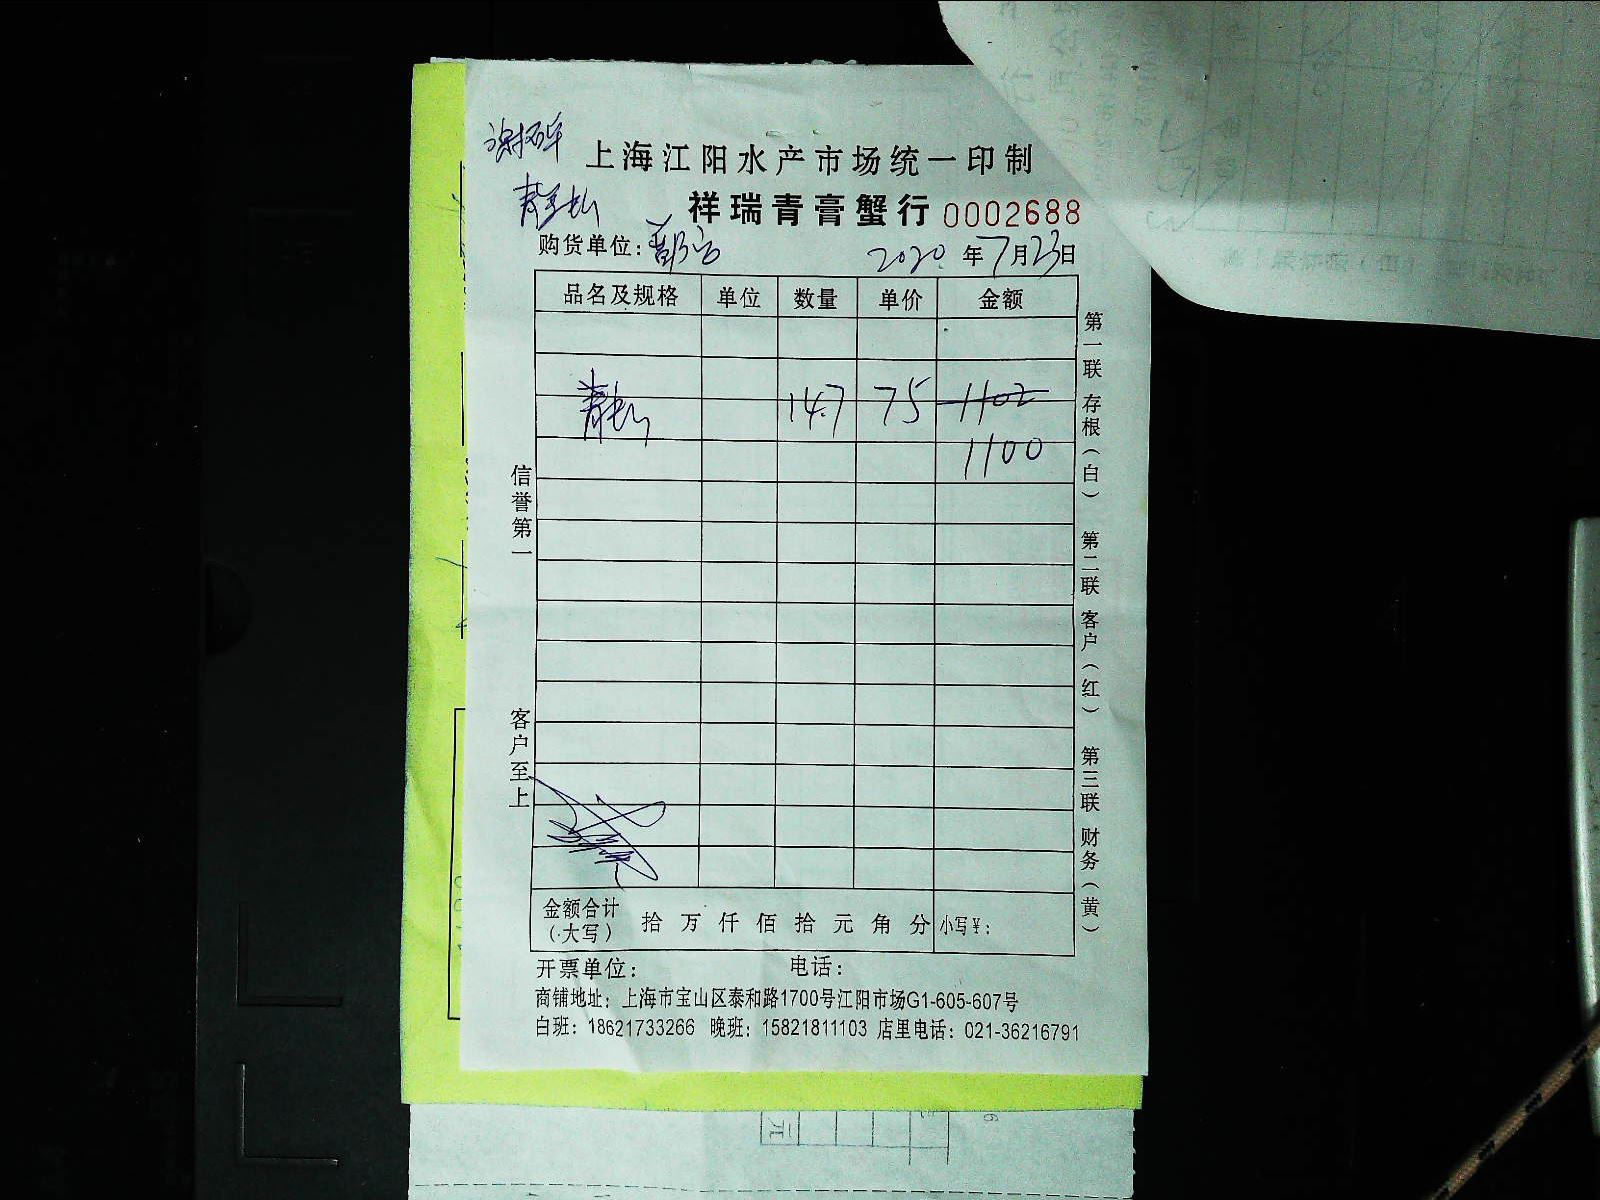 上海江阳水产市场统一印制
祥瑞青膏蟹行 0002688
购货单位: 2020 年 7 月 23 日
品名及规格 单位 数量 单价 金额
14.7 75 1102
1100
信誉第一
客户至上
第一联 存根(白) 第二联 客户(红) 第三联 财务(黄)
金额合计(大写) 拾 万 仟 佰 拾 元 角 分 小写¥:
开票单位: 电话:
商铺地址: 上海市宝山区泰和路1700号江阳市场G1-605-607号
白班: 18621733266 晚班: 15821811103 店里电话: 021-36216791
元